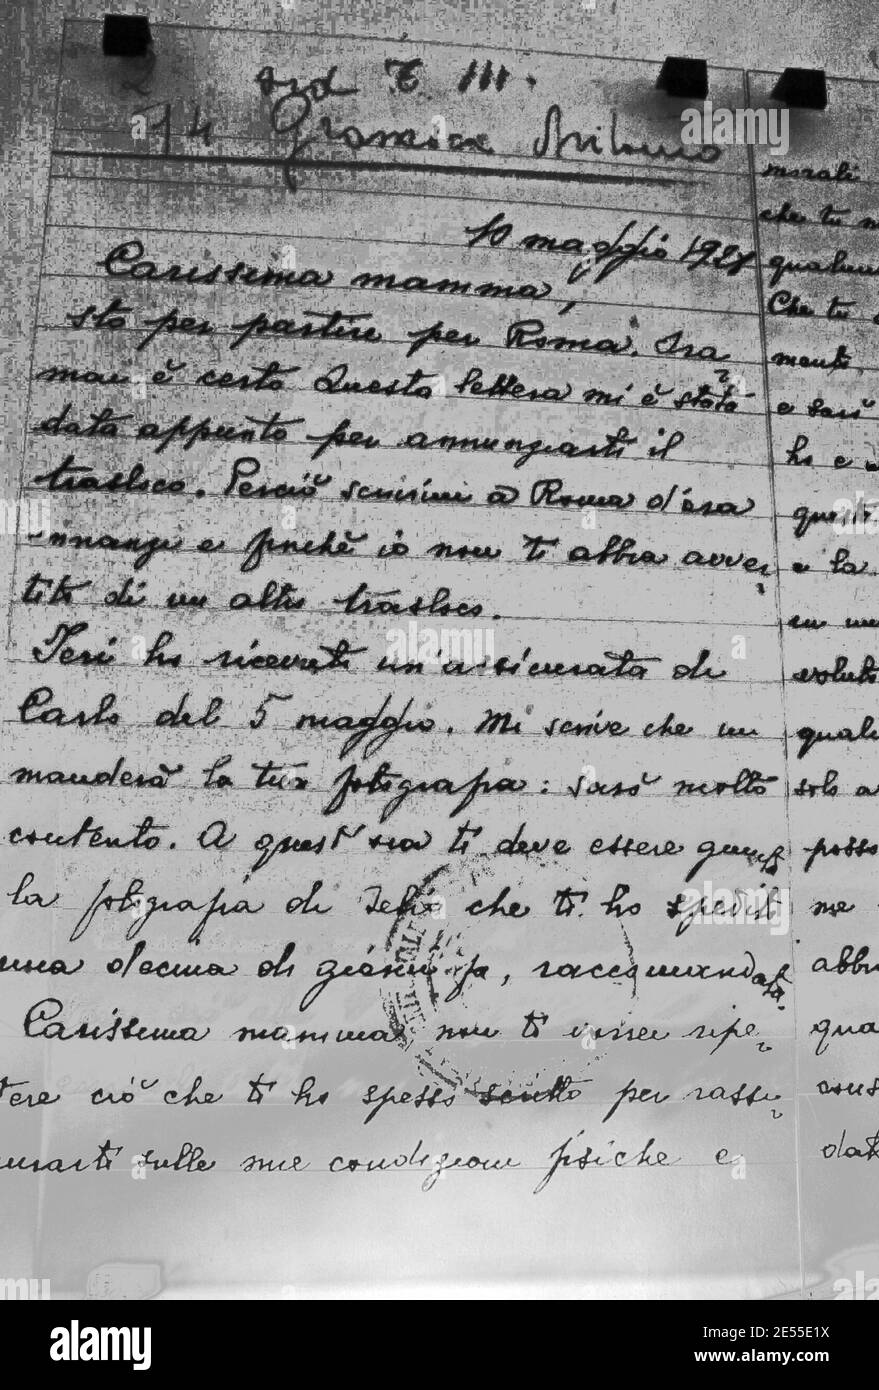 2
14 Gramsci Antonio
10 maggio 1928
Carissima mamma,
sto per partire per Roma. Ora
mai è certo. Questa lettera mi è stata
data appunto per annunziarti il
trasloco. Perciò scrivimi a Roma d'ora
innanzi e finché io non ti abbia avver
tito di un altro trasloco.
Ieri ho ricevuto un'assicurata di
Carlo del 5 maggio. Mi scrive che mi
manderà la tua fotografia: sarò molto
contento. A quest'ora ti deve essere giunta
la fotografia di Delio che ti ho spedito
una decina di giorni fa, raccomandata.
Carissima mamma, non ti vorrei ripe
tere ciò che ti ho spesso scritto per rassi
curarti sulle mie condizioni fisiche e
morali
che tu
Che tu
mente
e sarò
ho
e la
voluto
solo a
posso
me
alamy
Image ID: 2E55E1X
www.alamy.com